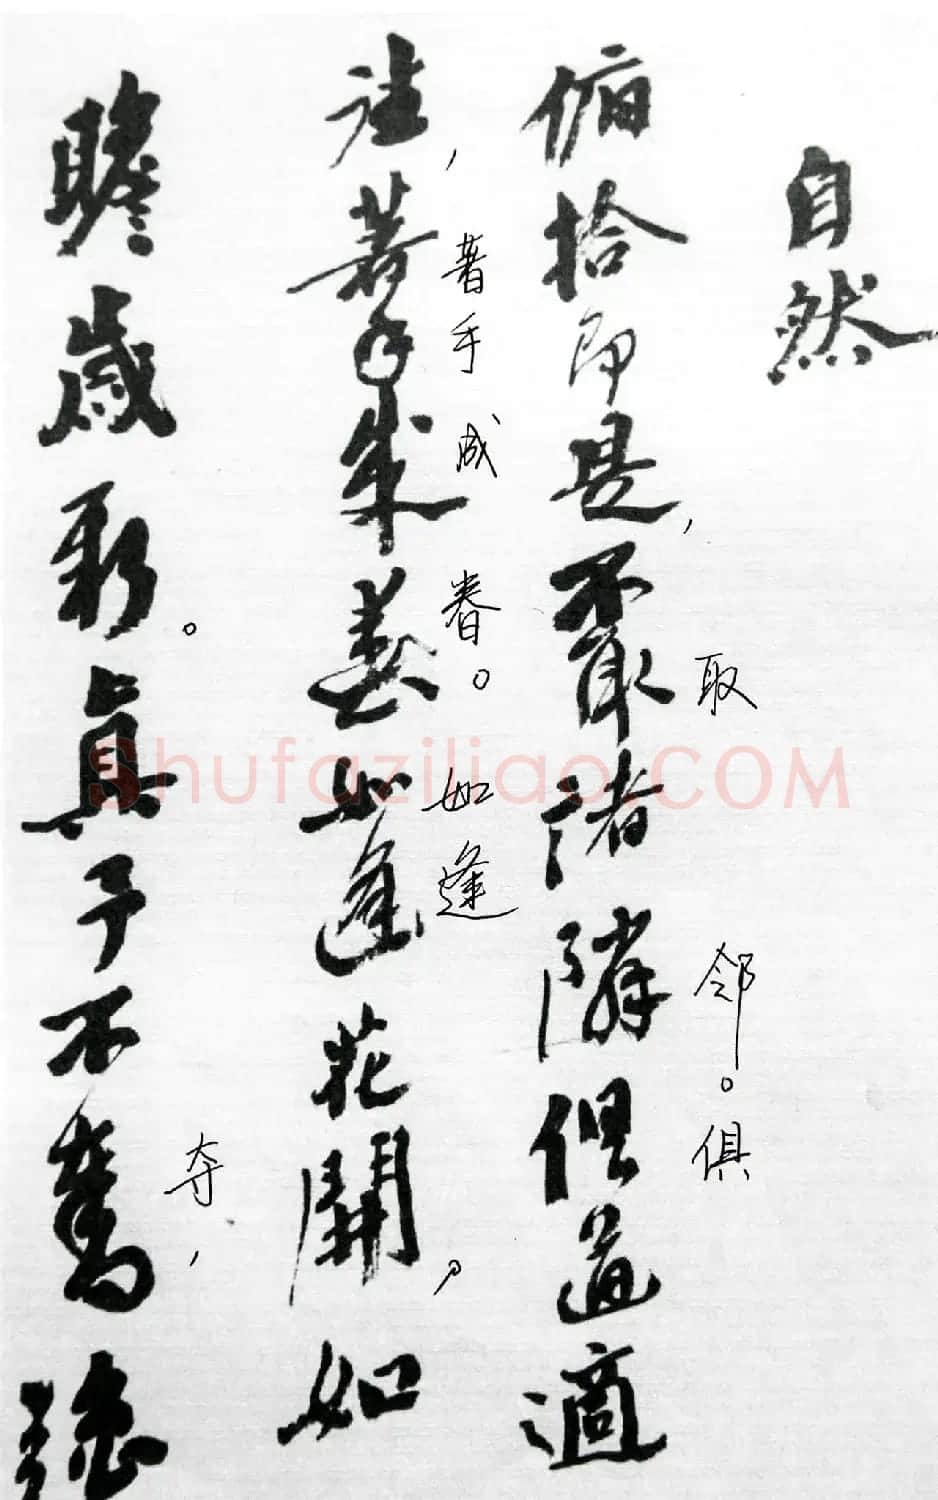 自然
取邻。俱
俯拾即是，不取諸隣俱道適
著手成春。如逢
往，著手成春如逢花開，如
夺，
瞻歲新。真予不奪強
Shufaziliao.COM